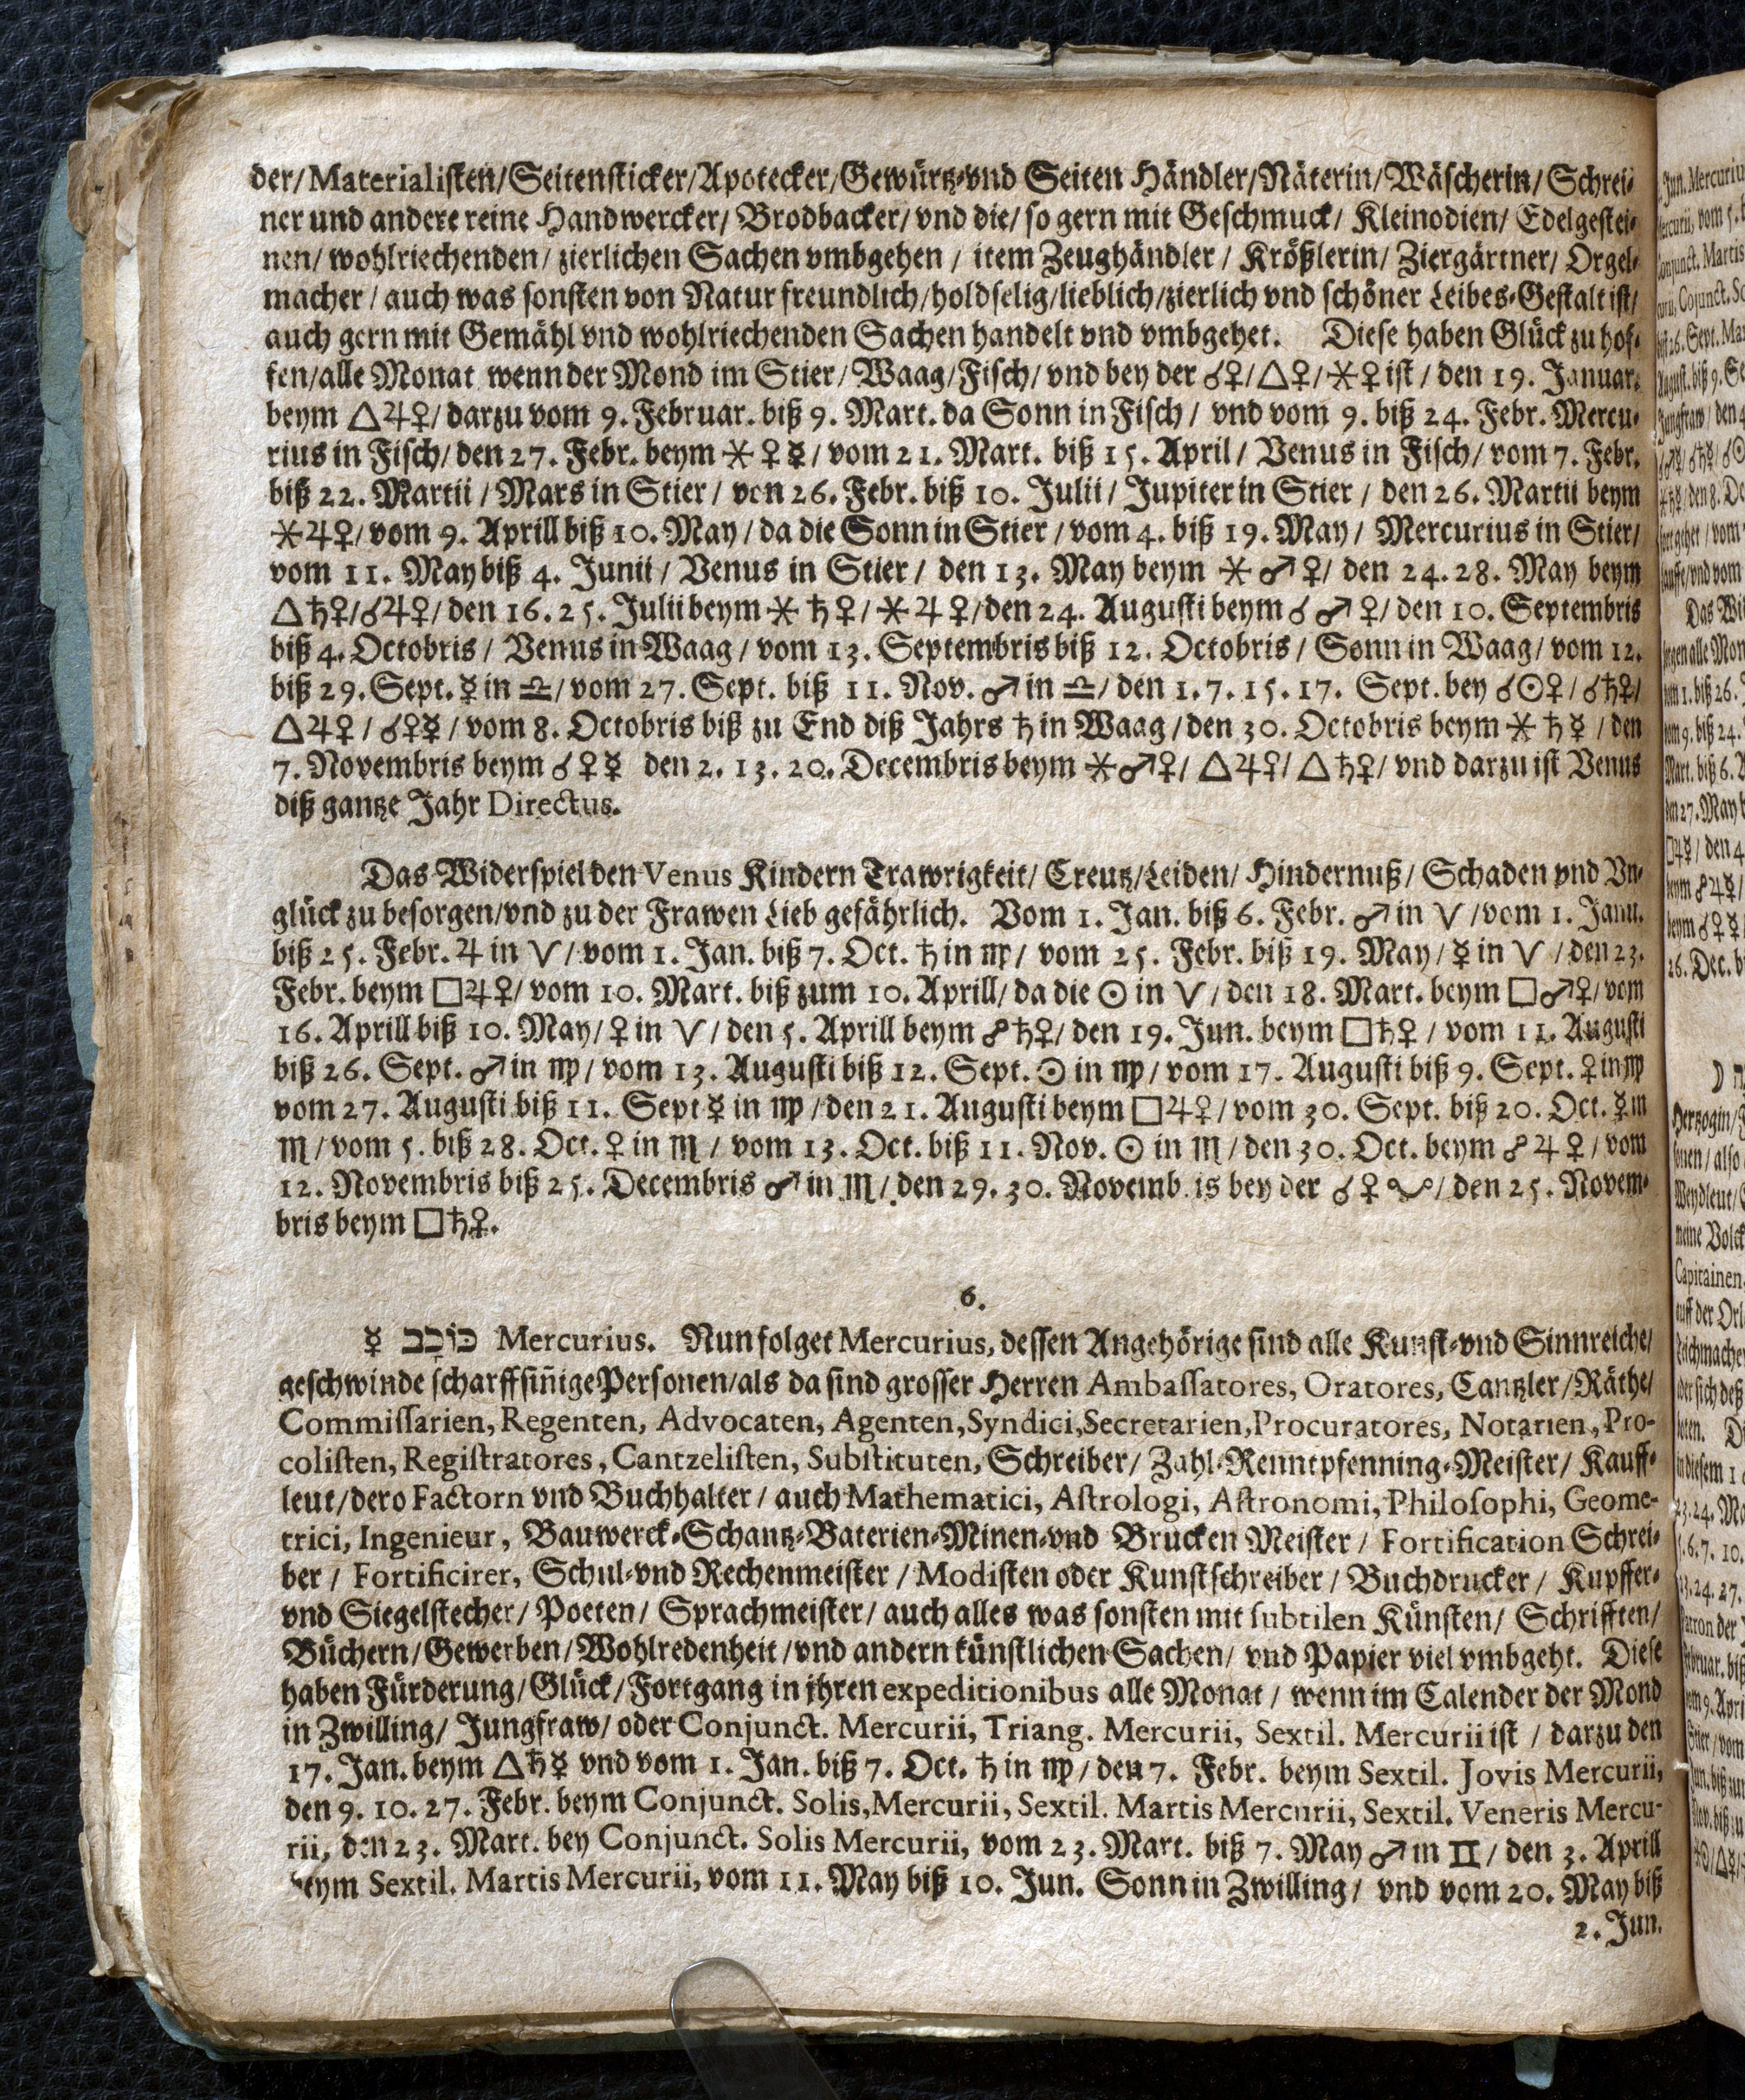 der/Materialisten/Seitensticker/Apotecker/Gewürtz-vnd Seiten Händler/Näterin/Wäscherin/Schrei-
ner und andere reine Handwercker/ Brodbacker/ vnd die/ so gern mit Geschmuck/ Kleinodien/ Edelgestei-
nen/ wohlriechenden/ zierlichen Sachen vmbgehen / item Zeughändler / Krößlerin/ Ziergärtner/ Orgel-
macher / auch was sonsten von Natur freundlich/holdselig/lieblich/zierlich vnd schöner Leibes-Gestalt ist/
auch gern mit Gemähl vnd wohlriechenden Sachen handelt vnd vmbgehet. Diese haben Glück zu hof-
fen/alle Monat wenn der Mond im Stier/ Waag/Fisch/ vnd bey der ☌♀/△♀/⚹♀ ist / den 19. Januar.
beym △♃♀/ darzu vom 9. Februar. biß 9. Mart. da Sonn in Fisch / vnd vom 9. biß 24. Febr. Mercu-
rius in Fisch/ den 27. Febr. beym ⚹♀☿/ vom 21. Mart. biß 15. April / Venus in Fisch/ vom 7. Febr.
biß 22. Martii / Mars in Stier / von 26. Febr. biß 10. Julii / Jupiter in Stier / den 26. Martii beym
⚹♃♀/ vom 9. Aprill biß 10. May / da die Sonn in Stier / vom 4. biß 19. May / Mercurius in Stier/
vom 11. May biß 4. Junii / Venus in Stier / den 13. May beym ⚹♂♀/ den 24. 28. May beym
△♄♀/☌♃♀/ den 16. 25. Julii beym ⚹♄♀/ ⚹♃♀/den 24. Augusti beym ☌♂♀/ den 10. Septembris
biß 4. Octobris / Venus in Waag / vom 13. Septembris biß 12. Octobris / Sonn in Waag/ vom 12.
biß 29. Sept. ☿ in ♎/ vom 27. Sept. biß 11. Nov. ♂ in ♎/ den 1. 7. 15. 17. Sept. bey ☌☉♀/ ☌♄♀/
△♃♀/ ☌♀☿/ vom 8. Octobris biß zu End diß Jahrs ♄ in Waag / den 30. Octobris beym ⚹♄☿ / den
7. Novembris beym ☌♀☿ den 2. 13. 20. Decembris beym ⚹♂♀/ △♃♀/ △♄♀/ vnd darzu ist Venus
diß gantze Jahr Directus.
Das Widerspiel den Venus Kindern Trawrigkeit/ Creutz/Leiden/ Hindernuß/ Schaden vnd Vn-
glück zu besorgen/vnd zu der Frawen Lieb gefährlich. Vom 1. Jan. biß 6. Febr. ♂ in ♈ /vom 1. Janu.
biß 25. Febr. ♃ in ♈/ vom 1. Jan. biß 7. Oct. ♄ in ♍/ vom 25. Febr. biß 19. May/ ☿ in ♈ / den 23.
Febr. beym □♃♀/ vom 10. Mart. biß zum 10. Aprill/ da die ☉ in ♈/ den 18. Mart. beym □♂♀/ vom
16. Aprill biß 10. May/ ♀ in ♈/ den 5. Aprill beym ☍♄♀/ den 19. Jun. beym □♄♀ / vom 11. Augusti
biß 26. Sept. ♂ in ♍/ vom 13. Augusti biß 12. Sept. ☉ in ♍/ vom 17. Augusti biß 9. Sept. ♀ in ♍
vom 27. Augusti biß 11. Sept ☿ in ♍/den 21. Augusti beym □♃♀/ vom 30. Sept. biß 20. Oct. ☿ in
♏/ vom 5. biß 28. Oct. ♀ in ♏ / vom 13. Oct. biß 11. Nov. ☉ in ♏ / den 30. Oct. beym ☍♃♀/ vom
12. Novembris biß 25. Decembris ♂ in ♏/ den 29. 30. Novemb is bey der ☌♀ / den 25. Novem-
bris beym □♄♀.
6.
☿ כּוֹכָב Mercurius. Nun folget Mercurius, dessen Angehörige sind alle Kunst-vnd Sinnreiche/
geschwinde scharffsiñige Personen/als da sind grosser Herren Ambassatores, Oratores, Cantzler/Räthe/
Commissarien, Regenten, Advocaten, Agenten, Syndici, Secretarien, Procuratores, Notarien, Pro-
colisten, Registratores, Cantzelisten, Substituten, Schreiber/ Zahl-Renntpfenning-Meister/ Kauff-
leut/dero Factorn vnd Buchhalter / auch Mathematici, Astrologi, Astronomi, Philosophi, Geome-
trici, Ingenieur, Bauwerck-Schantz-Baterien-Minen-vnd Brucken Meister / Fortification Schrei-
ber / Fortificirer, Schul-vnd Rechenmeister / Modisten oder Kunstschreiber / Buchdrucker / Kupffer-
vnd Siegelstecher/ Poeten/ Sprachmeister/ auch alles was sonsten mit subtilen Künsten/ Schrifften/
Büchern/Gewerben/Wohlredenheit /vnd andern künstlichen Sachen/ vnd Papier viel vmbgeht. Diese
haben Fürderung/Glück/Fortgang in jhren expeditionibus alle Monat / wenn im Calender der Mond
in Zwilling/ Jungfraw/ oder Conjunct. Mercurii, Triang. Mercurii, Sextil. Mercurii ist / darzu den
17. Jan. beym △♄☿ vnd vom 1. Jan. biß 7. Oct. ♄ in ♍/ den 7. Febr. beym Sextil. Jovis Mercurii,
den 9. 10. 27. Febr. beym Conjunct. Solis, Mercurii, Sextil. Martis Mercurii, Sextil. Veneris Mercu-
rii, den 23. Mart. bey Conjunct. Solis Mercurii, vom 23. Mart. biß 7. May ♂ in ♊/ den 3. Aprill
beym Sextil. Martis Mercurii, vom 11. May biß 10. Jun. Sonn in Zwilling/ vnd vom 20. May biß
2. Jun.